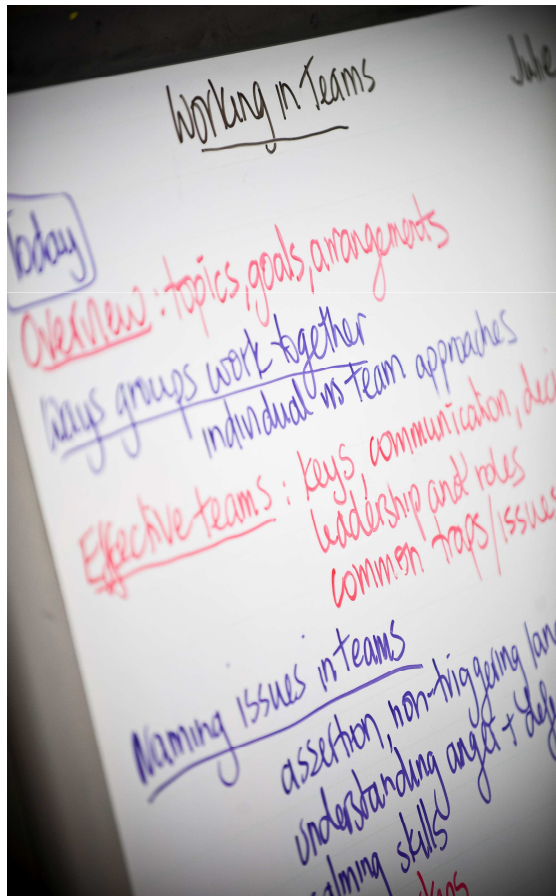 Working in Teams
Julie
Today
Overview: topics, goals, arrangements
Ways groups work together
individual vs team approaches
Effective teams: keys, communication,
leadership and roles
common traps/issues
Naming issues in teams
assertion, non-triggering
understanding anger +
calming skills